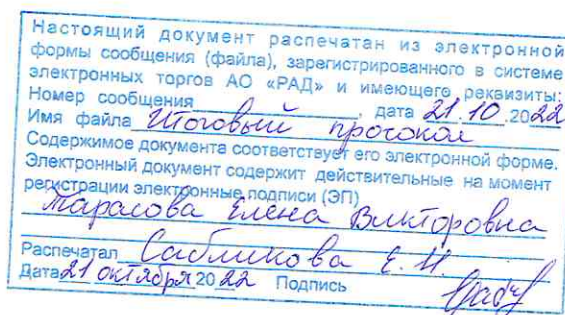 Настоящий документ распечатан из электронной
формы сообщения (файла), зарегистрированного в системе
электронных торгов АО «РАД» и имеющего реквизиты:
Номер сообщения , дата 21.10.2022
Имя файла Итоговый протокол
Содержимое документа соответствует его электронной форме.
Электронный документ содержит действительные на момент
регистрации электронные подписи (ЭП)
Тарасова Елена Викторовна
Распечатал Сабликова Е. Н.
Дата 21 октября 2022 Подпись